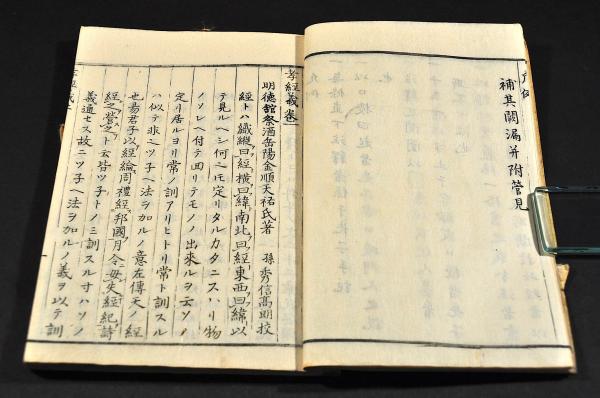 補其闕漏并附管見
孝經義卷一
明德館祭酒岳陽金順天祐氏著
孫秀信高明校
經トハ織縱曰經橫曰緯南北曰經東西曰緯以
テ見ルヘシ何ニモ定リタルカタニスハリ物
ノソレヘ付テ回リテモノノ出來ルヲ云ソノ
定リ居ルヨリ常ノ訓アリヒトリ常ト訓スル
ハ似テ非ニツ子ヘ法ヲ加ルノ意左傳天ノ經
也易君子以經綸周禮經邦國月令毋失經紀詩
經之營之ト云皆ツ子トノミ訓スル寸ハソノ
義通セス故ニツ子ヘ法ヲ加ルノ義ヲ以テ訓